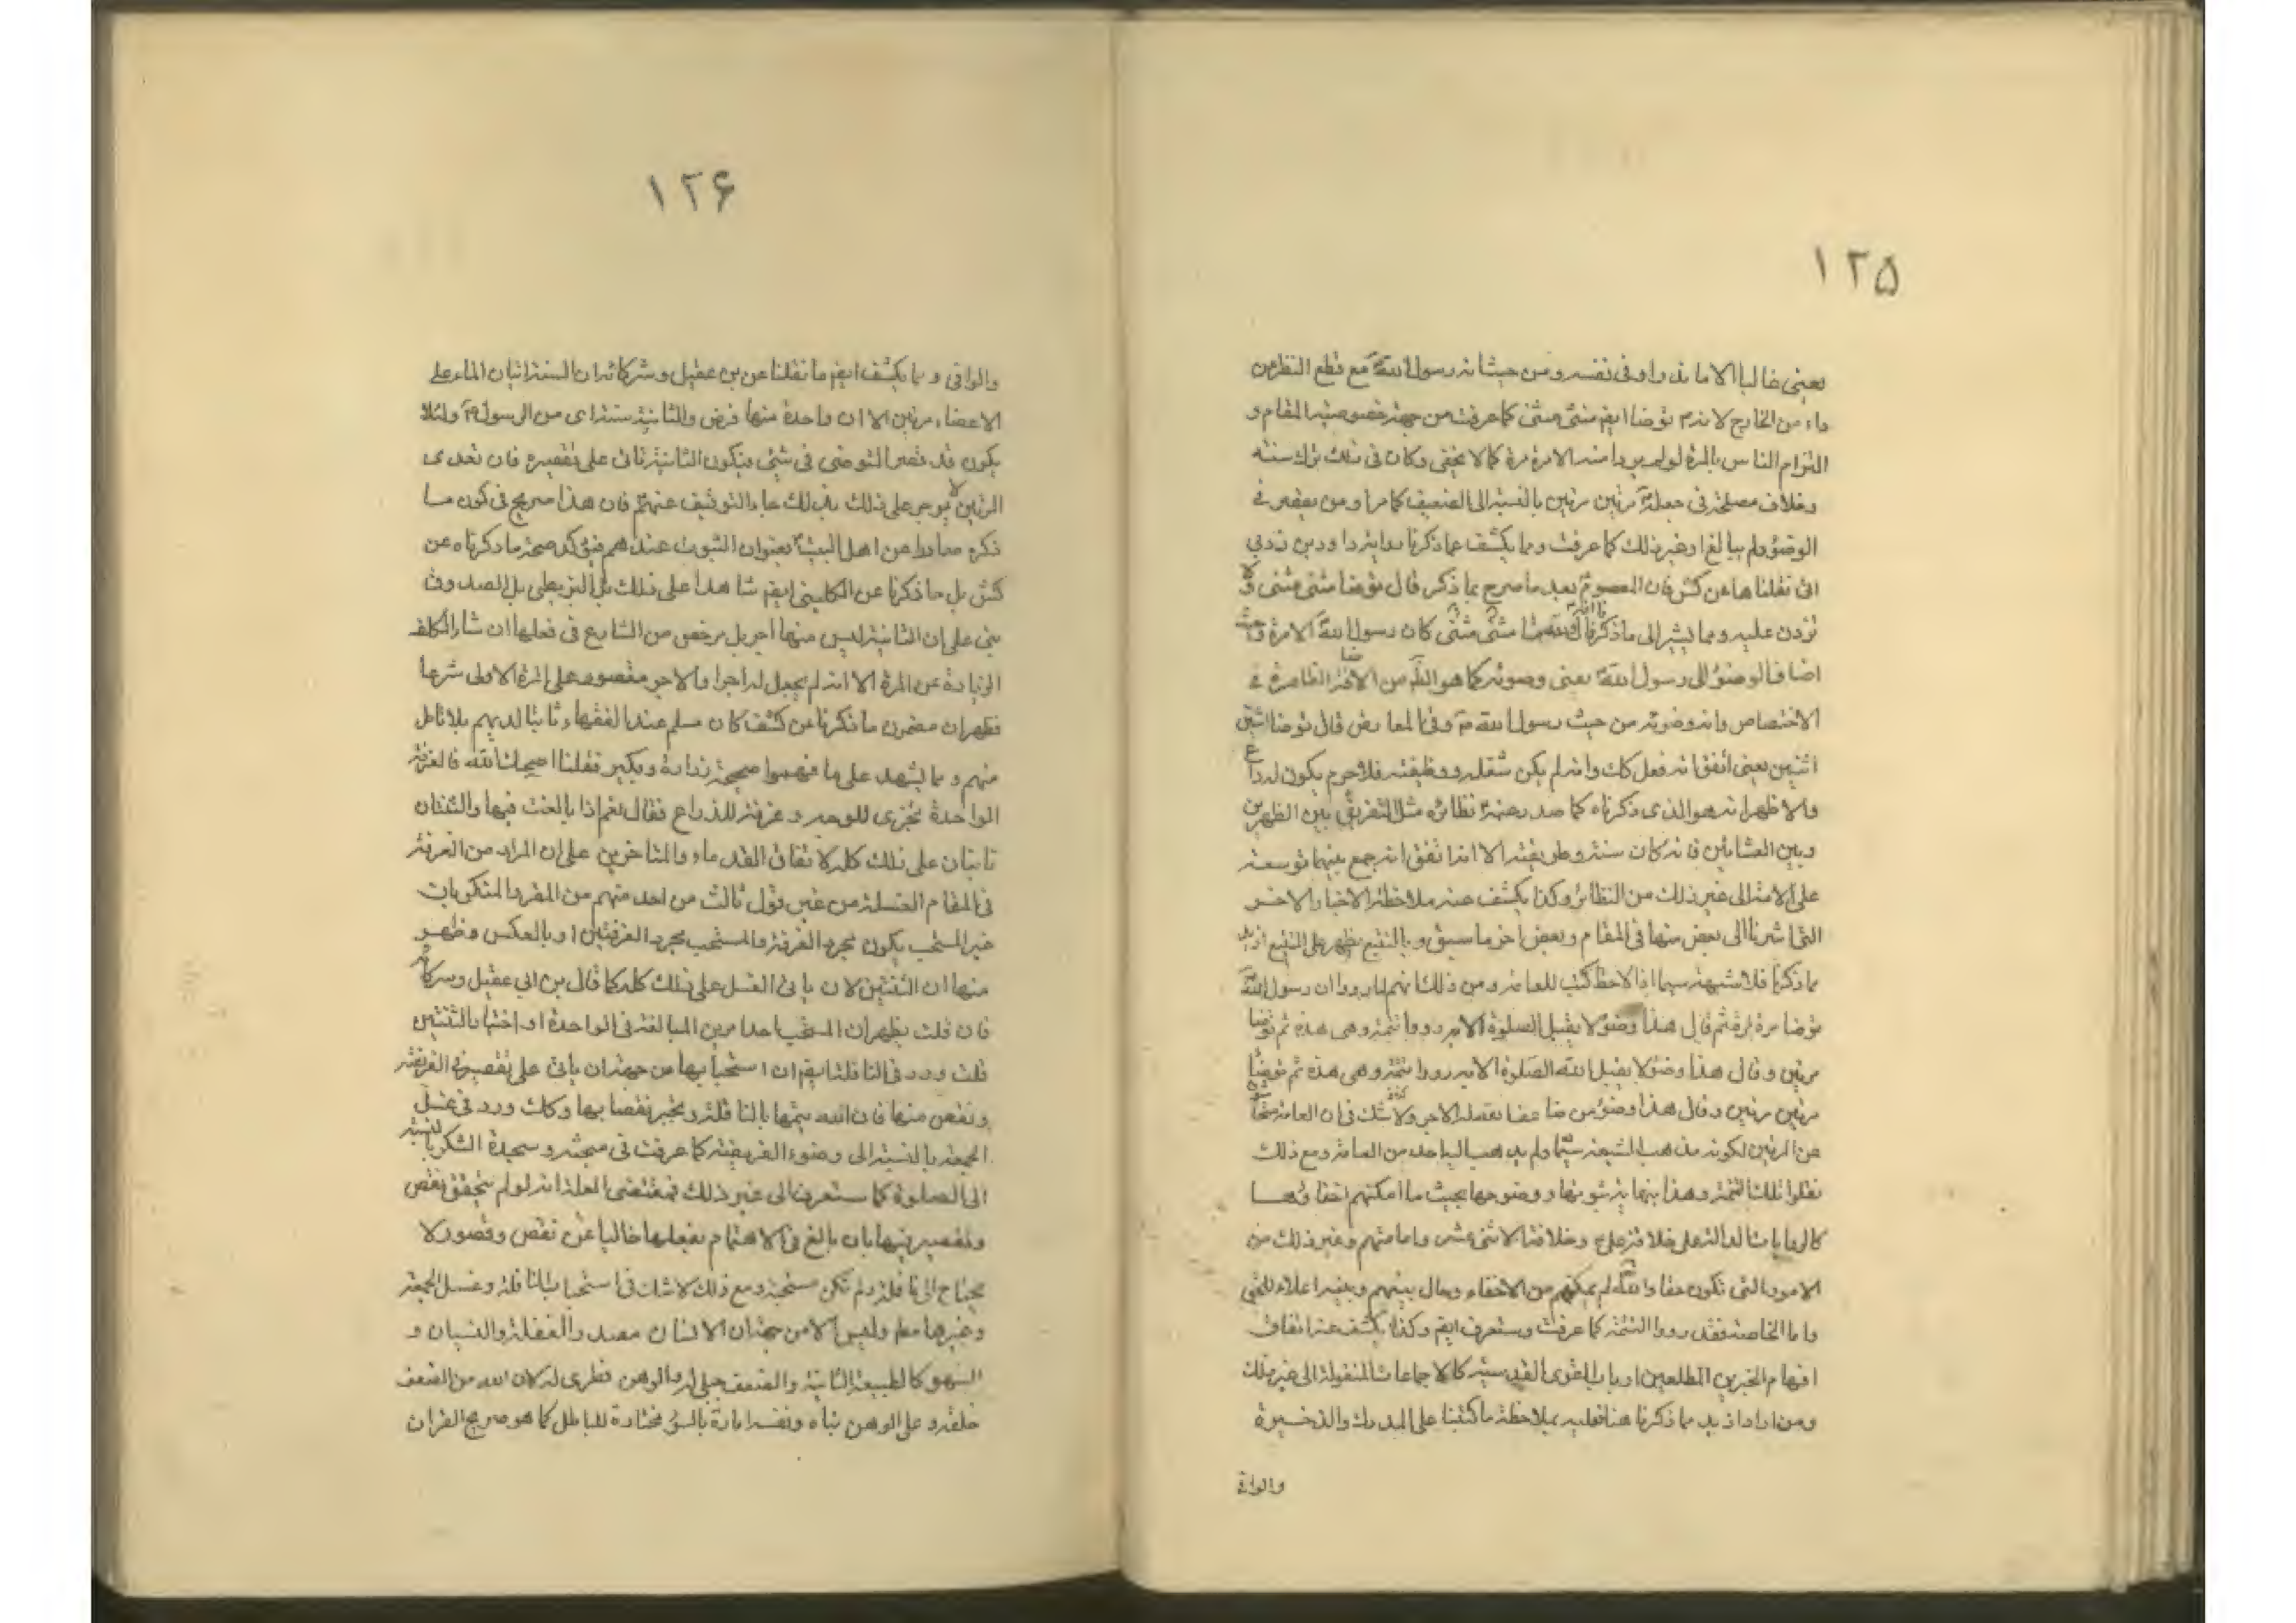 ١٢۵
يعنى غالبا الا ما ندر او فى نفسه ومن حيث انه رسول الله ص مع قطع النظر عن
داء من الخارج لا انه م توضأ ايضم مثنى مثنى كما عرفت من جهة خصوصية المقام و
التزام الناس بالمرة لو لم يروا منه الا مرة مرة كما لا يخفى وكان فى ذلك ترك سنته
وخلاف مصلحة فى جعله ص مرتين مرتين بالنسبة الى الضعيف كما مر او من يقصر فى
الوضوء ولم يبالغ او غير ذلك كما عرفت ومما يكشف عما ذكرنا رواية داود بن زربى
التى نقلناها عن كش فان المعصوم ع بعد ما صرح بما ذكر قال توضأ مثنى مثنى ولا
تزدن عليه ومما يشير الى ما ذكرنا مثنى مثنى كان رسول الله الا مرة
اضاف الوضوء الى رسول الله ص يعنى وضوئه كما هو من الظاهرة فى
الاختصاص وانه وضوئه من حيث رسول الله ص وفى المعارض قال توضأ اثنتين
اثنتين يعنى اتفق انه فعل كك وانه لم يكن شغله ووظيفته فلا جرم يكون له داع
والاظهر انه هو الذى ذكرناه كما صدر عنه ص نظائره مثل التفريق بين الظهرين
وبين العشائين فانه كان سنته وطريقته الا انه اتفق انه جمع بينهما توسعة
على الامة الى غير ذلك من النظائر وكذا يكشف عنه ملاحظة الاخبار الاخر
التى اشرنا الى بعض منها فى المقام وبعض اخر ما سبق وبالتتبع يظهر على المتتبع ازيد
مما ذكرنا فلا شبهة سيما اذا لاحظ كتب للعامة ومن ذلك انهم لما رووا ان رسول الله ص
توضأ مرة مرة ثم قال هذا وضوء لا يقبل الصلوة الا به رووا تتمته وهى هذه ثم توضأ
مرتين وقال هذا وضوء لا يقبل الله الصلوة الا به رووا تتمته وهى هذه ثم توضأ
مرتين مرتين وقال هذا وضوء من ضاعفه الاجر ولا شك فى ان العامة
عن المرتين لكونه مذهب الشيعة سيما ولم يذهب اليه احد من العامة ومع ذلك
نقلوا تلك التتمة وهذا ينبه ثبوتها ووضوحها بحيث ما امكنهم اخفائها
كالروايات الدالة على خلافة على ع وخلافة الاثنى عشر وامامتهم وغير ذلك من
الامور التى تكون حقا والله لم يمكنهم من الاخفاء وحال بينهم وبينه اعلاء للحق
واما الخاصة فقد رووا التتمة كما عرفت وستعرف ايضم وكذا يكشف عنه اتفاق
افهام الخبيرين المطلعين ارباب القوى القدسية كالاجماعات المنقولة الى غير ذلك
ومن اراد ازيد مما ذكرنا هنا فعليه بملاحظة ما كتبنا على المدارك والذخيرة
والوافى
١٢۶
والوافى ومما يكشف ايضم ما نقلنا عن بن عقيل وشركائه ان السنة اتيان الماء على
الاعضاء مرتين الا ان واحدة منها فرض والثانية سنة اى من الرسول ص ولئلا
يكون قد قصر المتوضى فى شئ فيكون الثانية تاتى على تقصيره فان تعدى
المرتين لا يوجر على ذلك بذلك جاء التوقيف عنهم ع فان هذا صريح فى كون ما
ذكره صادرا عن اهل البيت ع بعنوان الثبوت عندهم فيؤكد صحة ما ذكرناه عن
كش بل ما ذكرنا عن الكلينى ايضم شاهدا على ذلك بل البزنطى بل الصدوق
بنى على ان الثانية ليس منها اجر بل مرخص من الشارع فى فعلها ان شاء المكلف
الزيادة عن المرة الا انه لم يجعل له اجرا والاجر مقصور على المرة الاولى شرعا
فظهر ان مضمون ما ذكرنا عن كشف كان مسلم عند الفقهاء ثابتا لديهم بلا تامل
منهم ومما يشهد على ما فهموا صحيحة زرارة وبكير فقلنا اصلحك الله فالغرفة
الواحدة تجزى للوجه وغرفة للذراع فقال نعم اذا بالغت فيها والثنتان
تاتيان على ذلك كله لاتفاق القدماء والمتاخرين على ان المراد من الغرفة
فى المقام الغسلة من غير قول ثالث من احد منهم من المقر والمنكر بان
غير المستحب يكون مجرد الغرفة والمستحب مجرد الغرفتين او بالعكس وظهر
منها ان الثنتين لان ياتى الغسل على ذلك كله كما قال بن ابى عقيل وشركائه
فان قلت يظهر ان المستحب احد امرين المبالغة فى الواحدة او اختيار الثنتين
قلت ورد فى النافلة ايضم ان استحبابها من جهة ان ياتى على تقصير فى الفريضة
ونقص منها فان الله يتمها بالنافلة ويجبر نقصا بها وكك ورد فى غسل
الجمعة بالنسبة الى وضوء الفريضة كما عرفت فى مبحثه وسجدة الشكر بالنسبة
الى الصلوة كما ستعرف الى غير ذلك فمقتضى العلة انه لو لم يتحقق نقص
وتقصير فيها بان بالغ فى الاهتمام بفعلها خاليا عن نقص وقصور لا
يحتاج الى نافلة ولم تكن مستحبة ومع ذلك لا شك فى استحباب النافلة وغسل الجمعة
وغيرها مطم وليس الا من جهة ان الانسان مصدر الغفلة والنسيان و
السهو كالطبيعة الثانية والضعف جبلى له والوهن فطرى له لان الله من الضعف
خلقه وعلى الوهن بناه ونفسه امارة بالسوء مختارة للباطل كما هو صريح القران